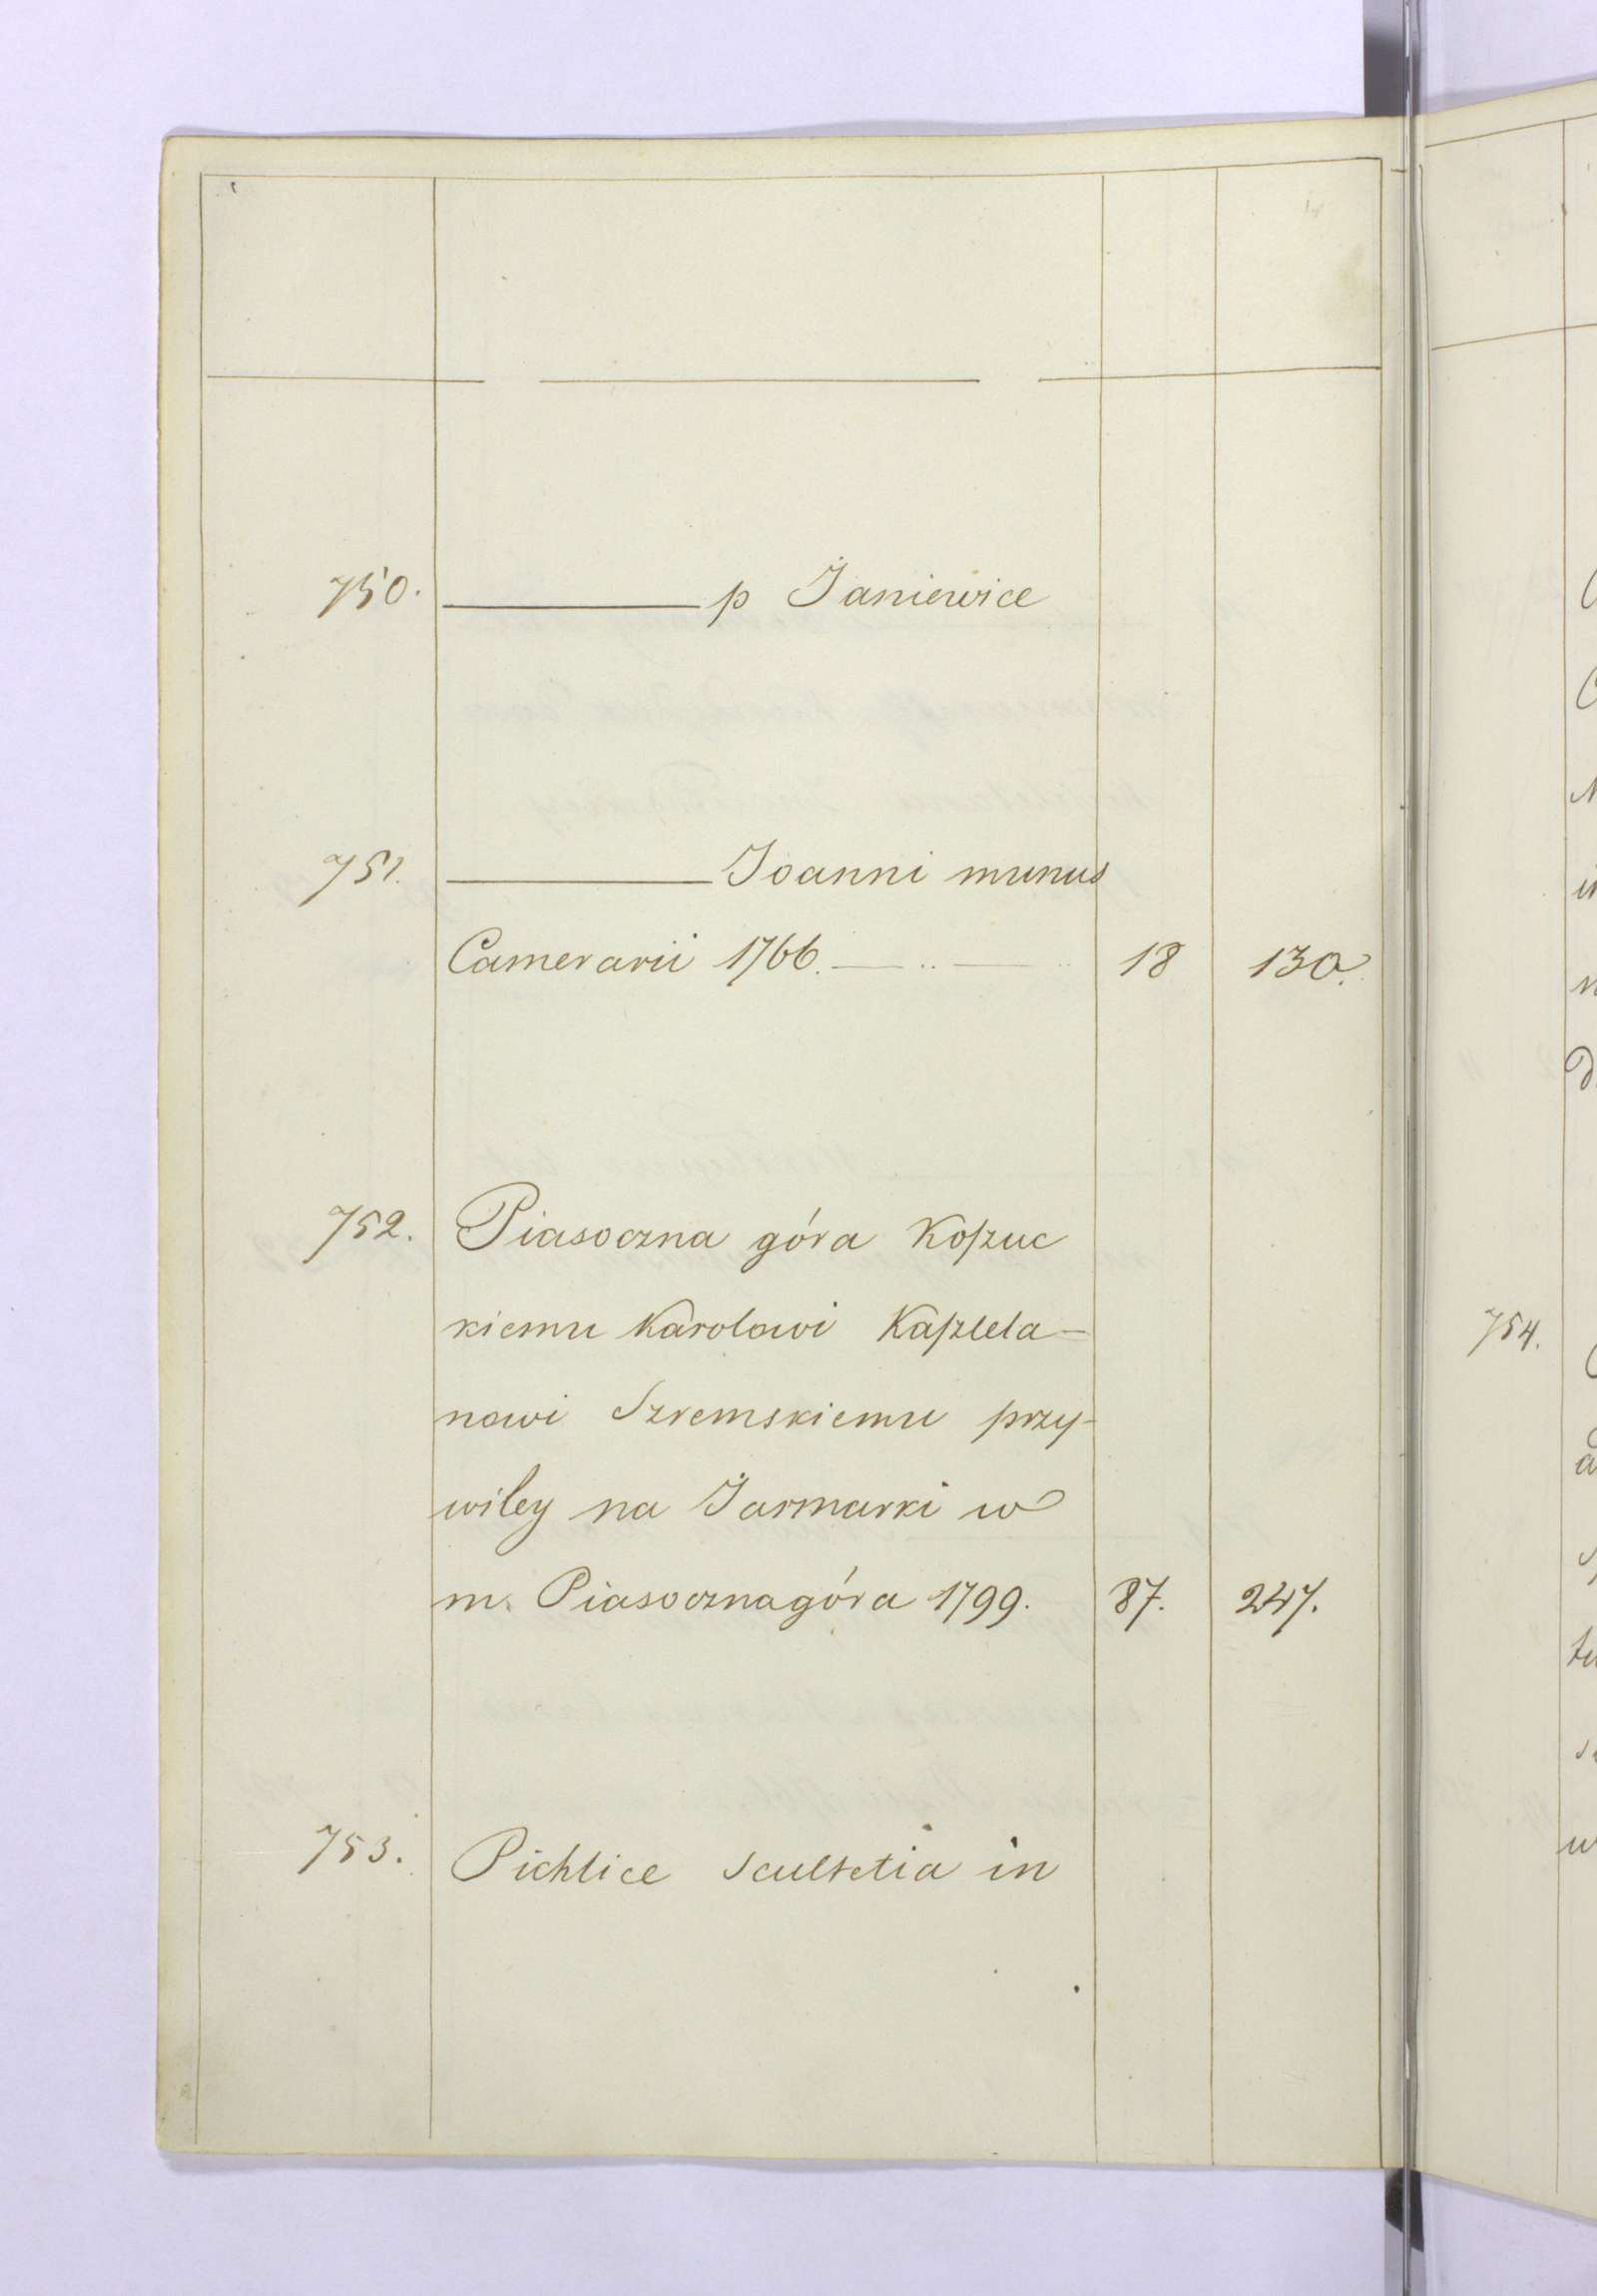 750. ——— p Janiewice
751. ——— Joanni munus
Camerarii 1766. — .. — .. 18 130.
752. Piasoczna góra Koſzuc
kiemu Karolowi Kaſztela-
nowi Szremskiemu przy-
wiley na Jarmarki w
m. Piasocznagóra 1799. 87. 247.
753. Pichlice scultetia in
754.